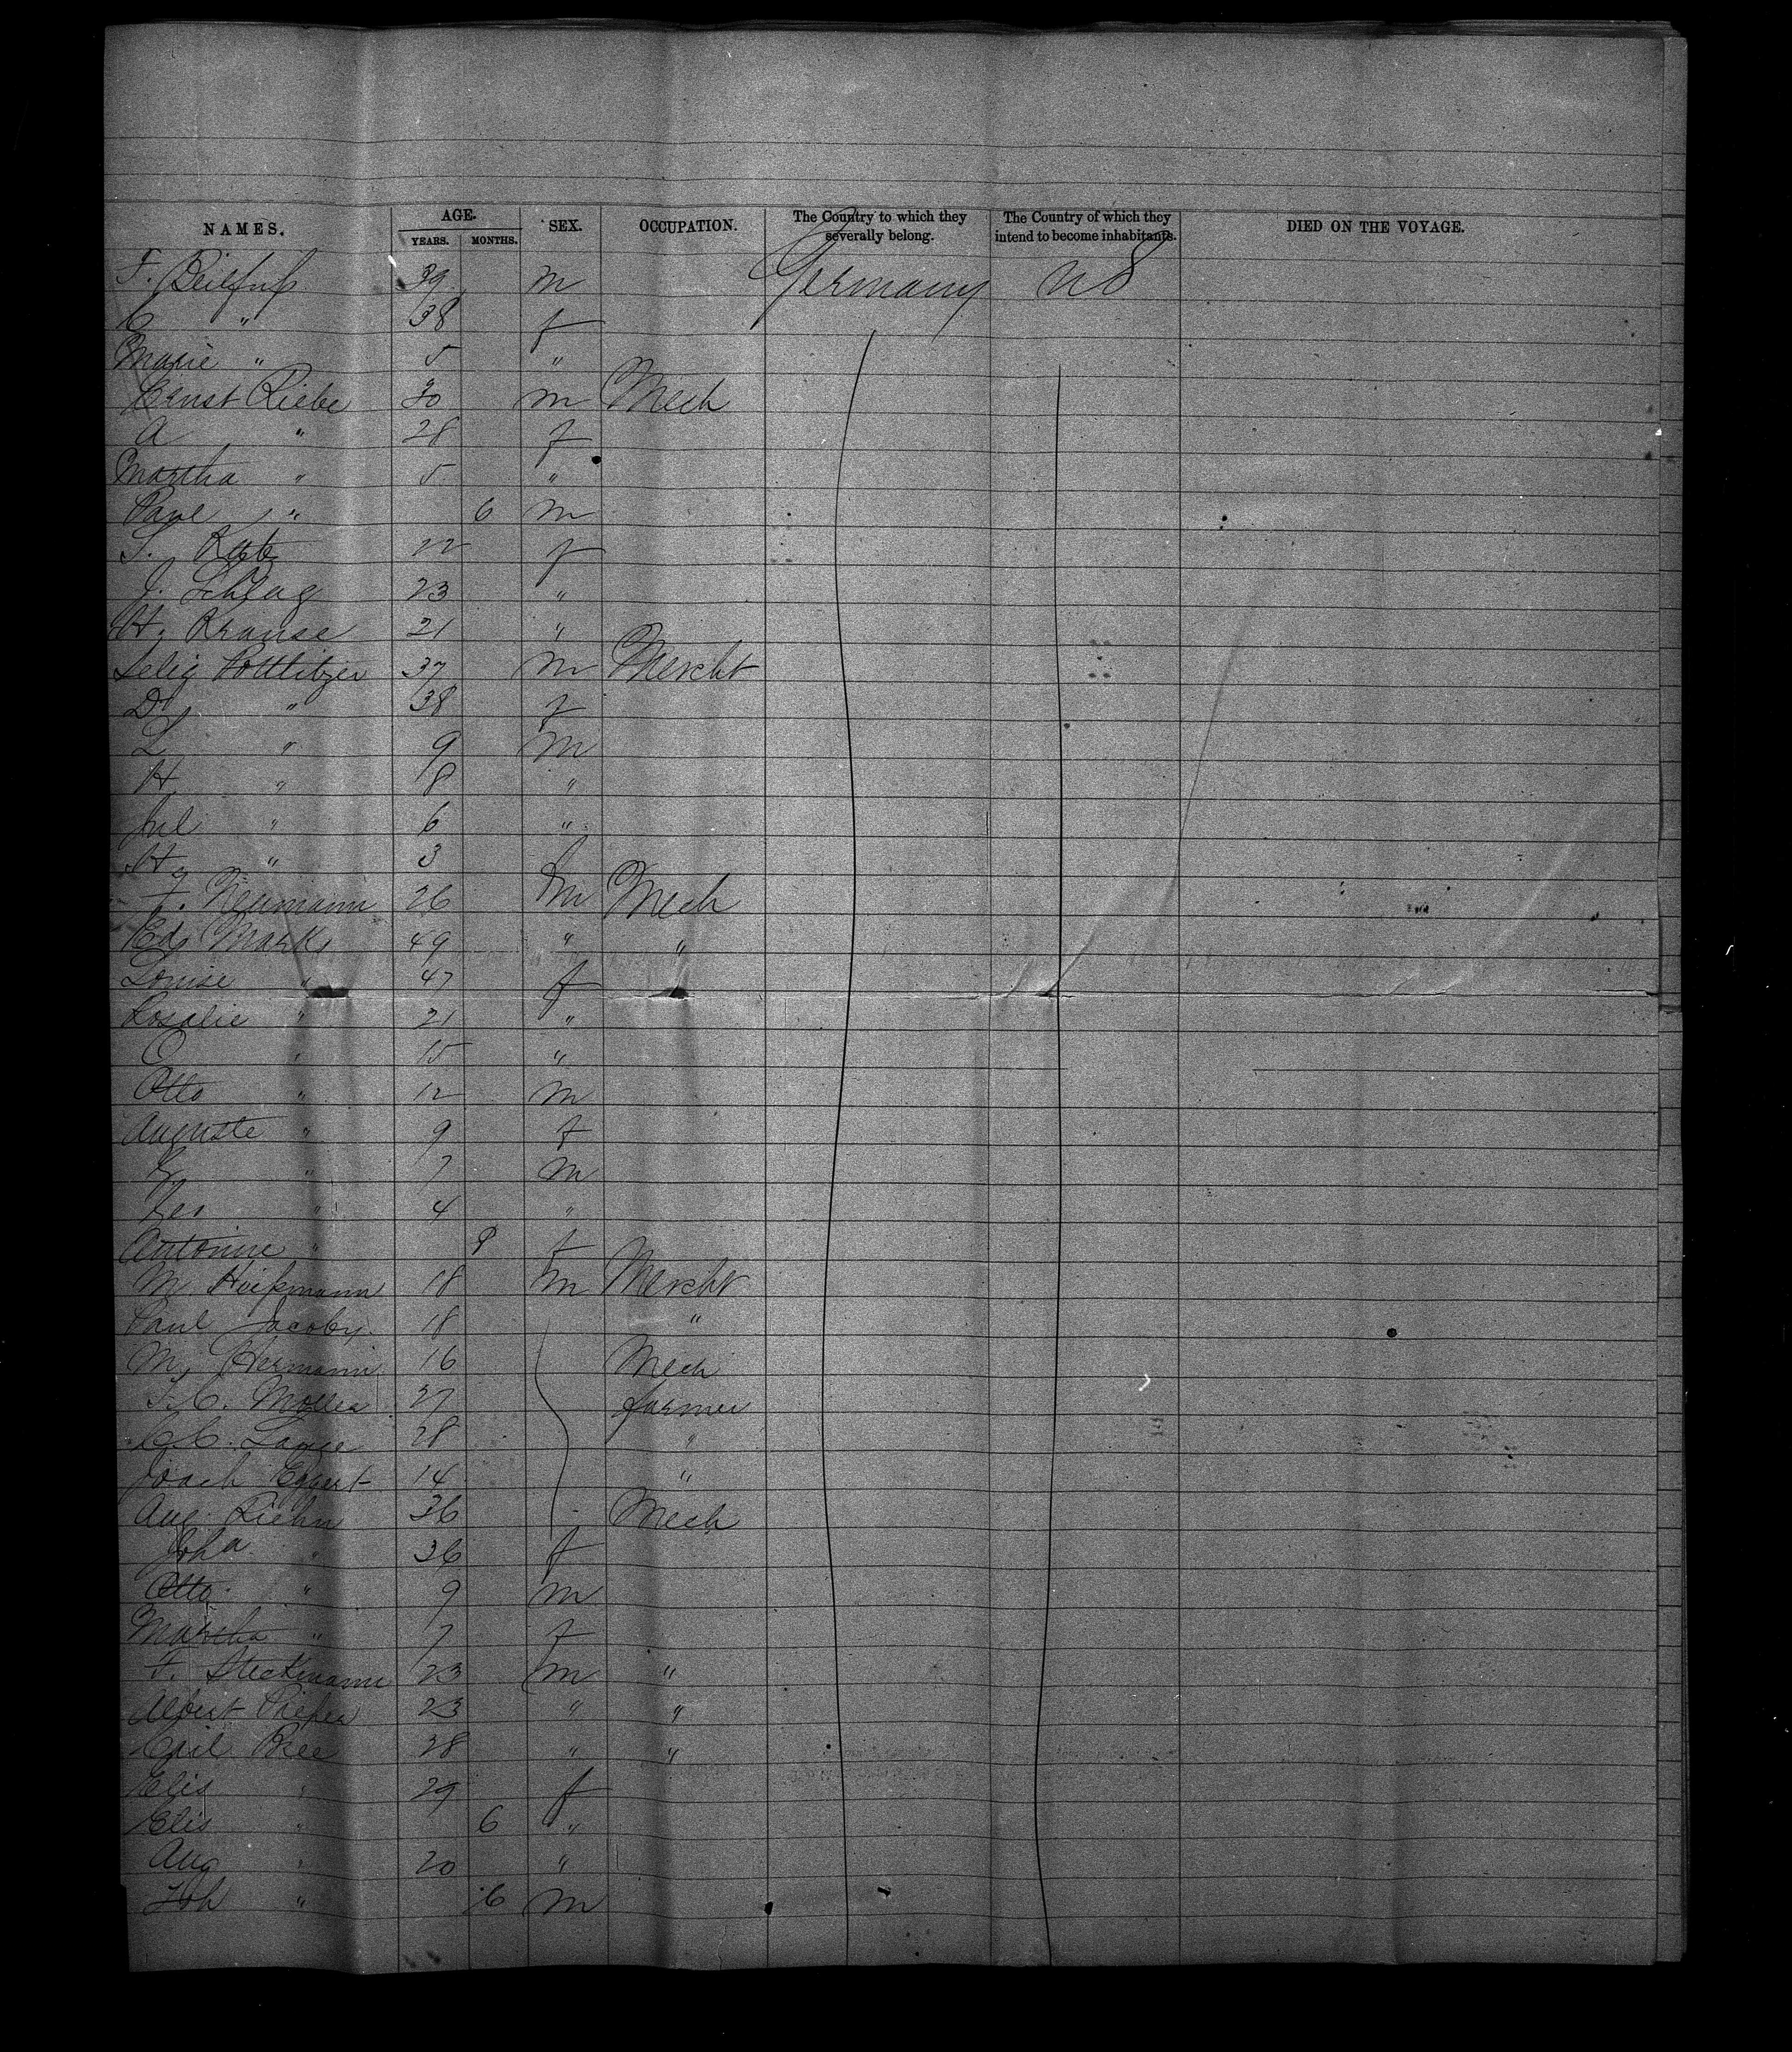 NAMES. AGE. YEARS. MONTHS. SEX. OCCUPATION. The Country to which they severally belong. The Country of which they intend to become inhabitants. DIED ON THE VOYAGE.
F. Beilfuß 39 m Germany US
C " 38 f
Marie " 5 "
Ernst Riebe 30 m Mech
A " 28 f
Martha " 5 "
Paul " 6 m
S. 22 f
J. Schlag 23 "
H. Krause 21 "
Selig Pottlitzer 37 m Mercht
D " 38 f
L " 9 m
H " 8 "
Jul " 6 "
Hy " 3
F. Neumann 26 m Mech
Ed Marks 49 " "
Louise " 47 f
Rosalie " 21 "
O " 15 "
Otto " 12 m
Auguste " 9 f
" 7 m
" 4 "
Antonine " 9 f
M. 18 m Mercht
Paul Jacoby 18 "
M. Hermann 16 Mech
F. C. Moller 27 farmer
C. C. Lange 28 "
Joach Eggert 14 "
Aug. Riehn 36 Mech
Joha " 36 f
Otto " 9 m
Martha " 7 f
F. Steckmann 23 m "
Albert Pieper 23 " "
Carl 28 " "
Elis " 29 f
Elis " 6 "
Aug " 20 "
Joh " 6 m